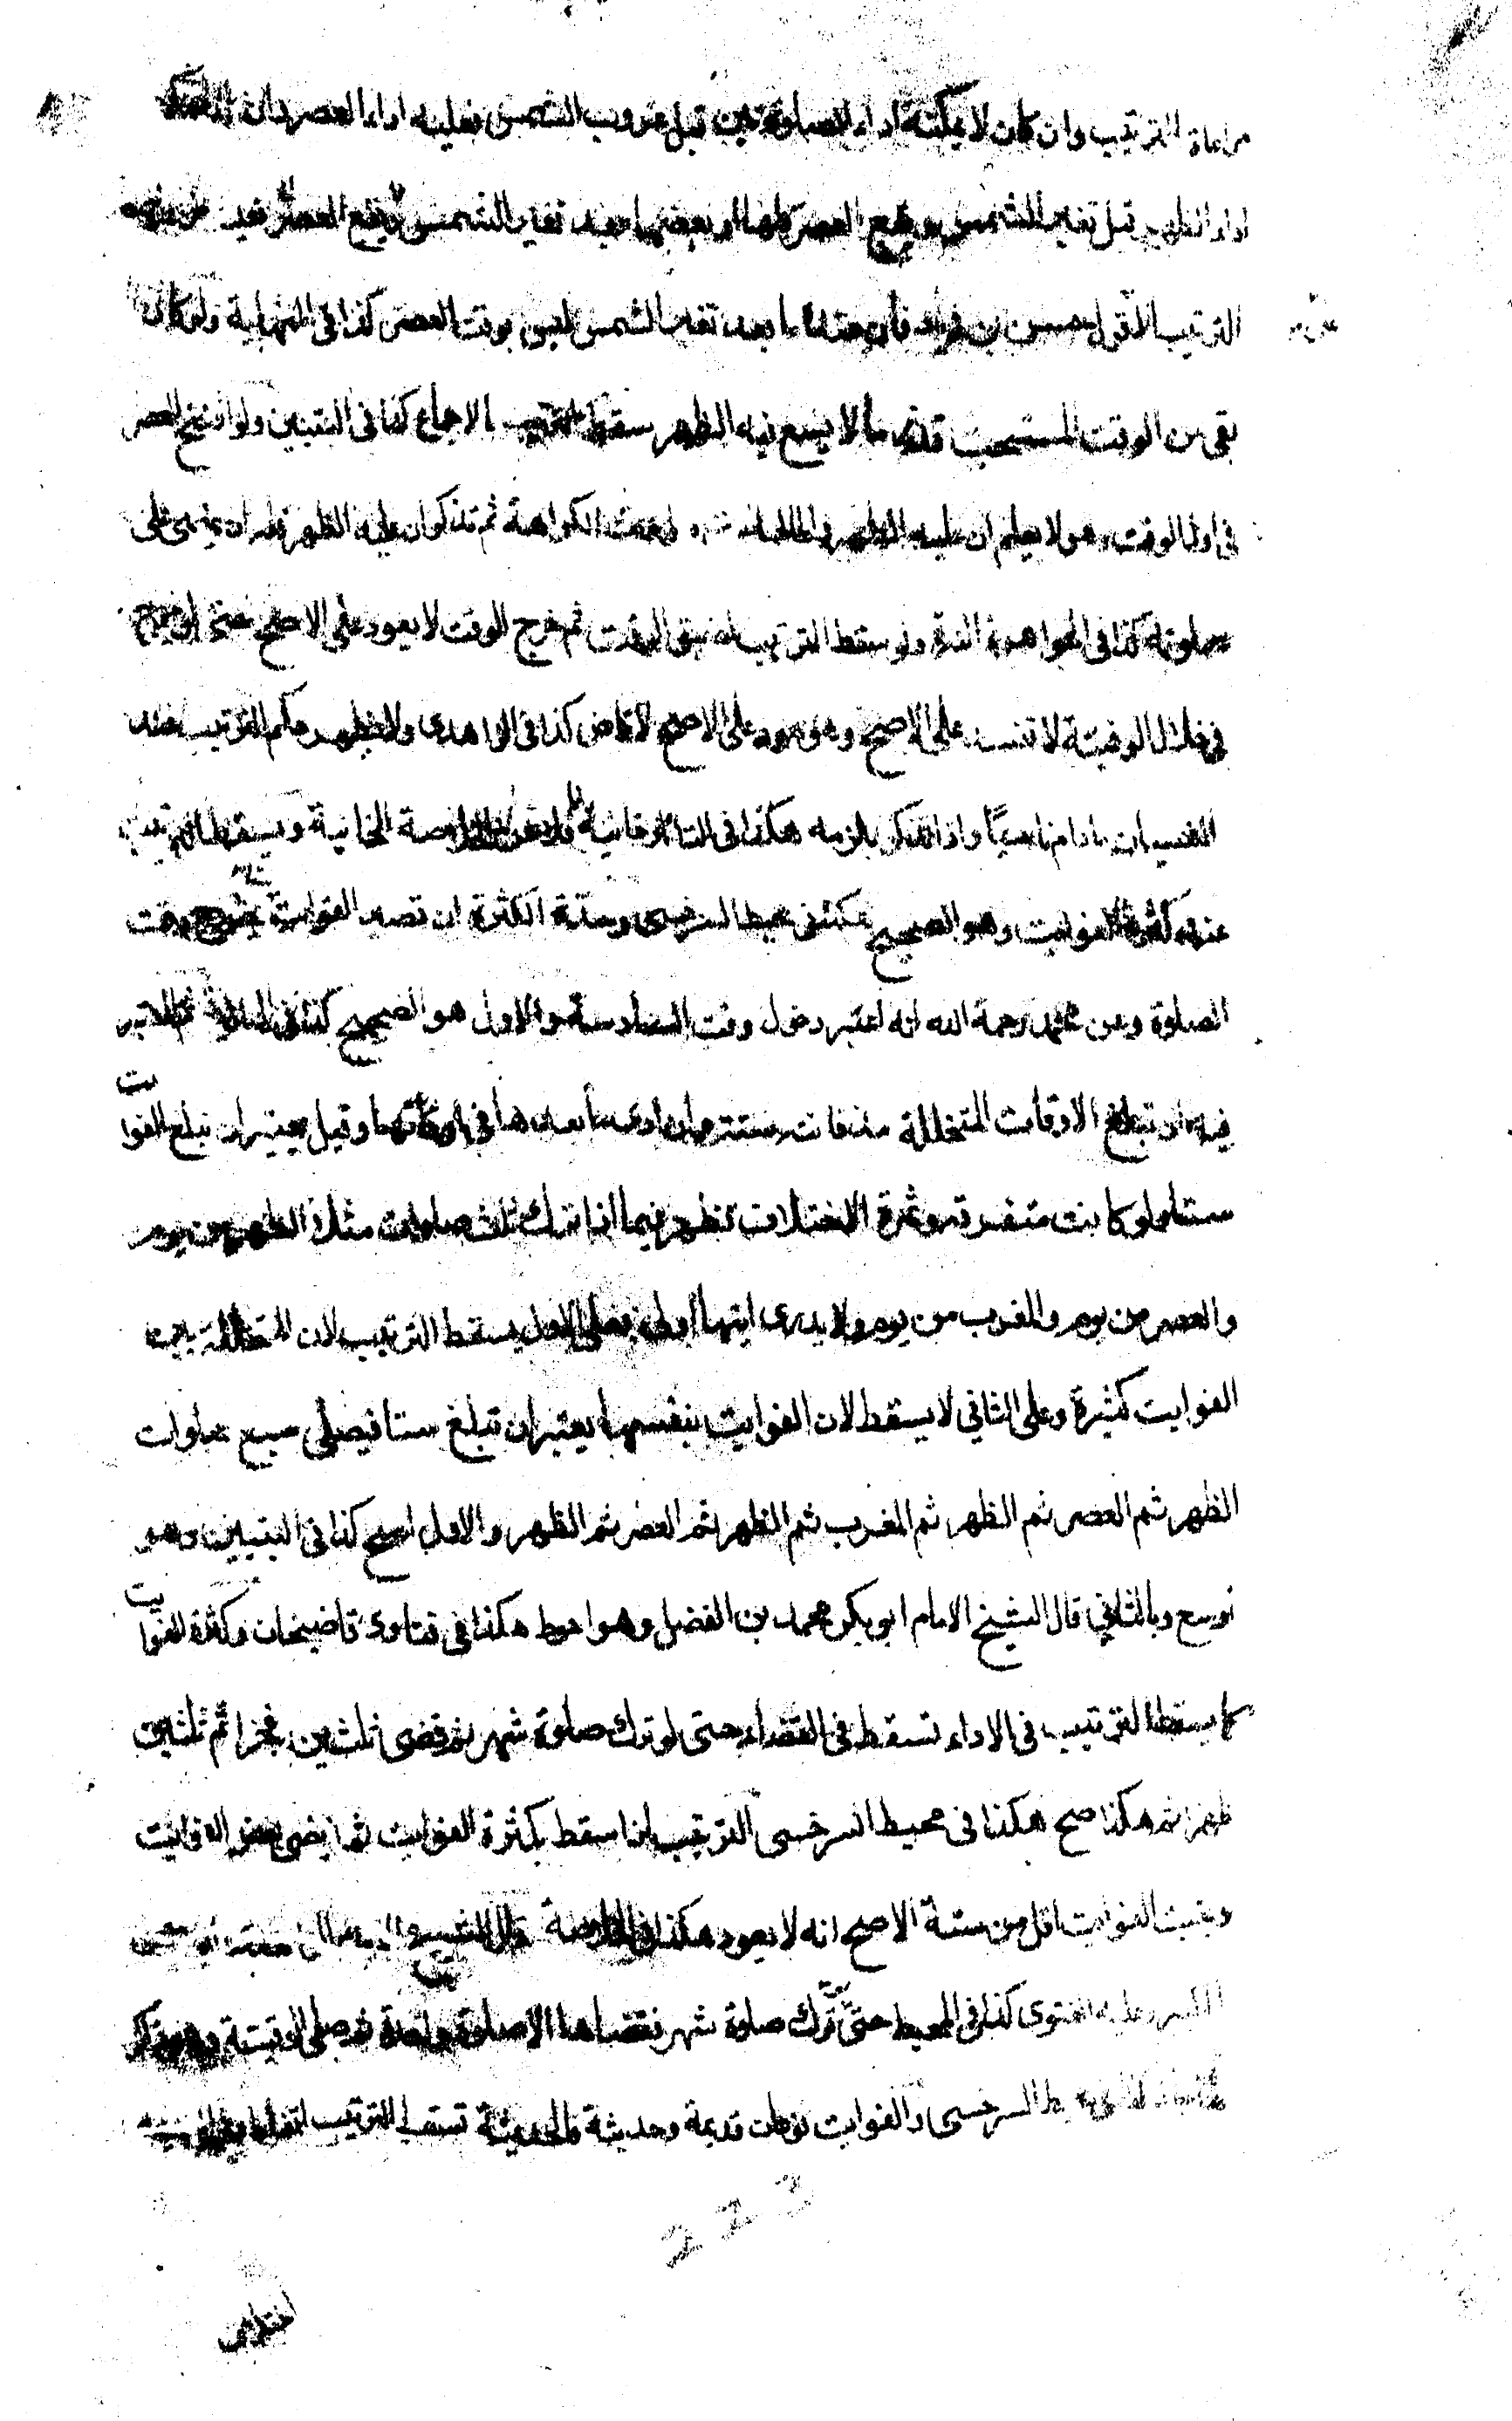 مراعاة الترتيب وان كان لا يمكنه اداء الصلوتين قبل غروب الشمس فعليه اداء العصر وان
اداء الظهر قبل تغير الشمس ويقع العصر كلها او بعضها بعد تغير الشمس
الترتيب الا قول حسن بن زياد فان عنده ما بعد تغير الشمس ليس بوقت العصر كذا فى النهاية ولو كان
بقى من الوقت المستحب قدر ما لا يسع فيه الظهر سقط الترتيب بالاجماع كذا فى التبيين ولو افتتح العصر
فى اول الوقت وهو لا يعلم ان عليه الظهر واطال الكراهة ثم تذكر ان عليه الظهر فله ان يمضى على
صلوته كذا فى الجواهرة النيرة ولو سقط الترتيب لضيق الوقت ثم خرج الوقت لا يعود على الاصح حتى لو خرج
فى خلال الوقتية لا تفسد على الاصح وهو مود على الاصح لا قاض كذا فى الزاهدى ولا يظهر حكم الترتيب عند
النسيان ما دام ناسيًا واذا تذكر يلزمه هكذا فى التاتارخانية الخانية ويسقط الترتيب
عند كثرة الفوايت وهو الصحيح هكذا فى محيط السرخسى وحد الكثرة ان تصير الفوايت ستة بخروج وقت
الصلوة وعن محمد رحمة الله انه اعتبر دخول وقت السادسة والاول هو الصحيح كذا فى الهداية ثم المعتبر
فيه ان تبلغ الاوقات المتخللة مذ فاتت ستة وان ادى ما بعدها فى اوقاتها وقيل يعتبر ان تبلغ الفوايت
ستا ولو كانت متفرقة وثمرة الاختلاف تظهر فيما اذا ترك ثلث صلوات مثلا الظهر من يوم
والعصر من يوم والمغرب من يوم ولا يدرى ايتها اولى فعلى الاول يسقط الترتيب لان المتخللة بين
الفوايت كثيرة وعلى الثانى لا يسقط لان الفوايت بنفسها يعتبر ان تبلغ ستا فيصلى سبع صلوات
الظهر ثم العصر ثم الظهر ثم المغرب ثم الظهر ثم العصر ثم الظهر والاول اصح كذا فى التبيين وهو
توسع وبالثانى قال الشيخ الامام ابو بكر محمد بن الفضل وهو احوط هكذا فى فتاوى قاضيخان وكثرة الفوايت
كما يسقط الترتيب فى الاداء تسقط فى القضاء حتى لو ترك صلوة شهر ثم قضى ثلثين فجرا ثم ثلثين
ظهرا ثم هكذا صح هكذا فى محيط السرخسى الترتيب اذا سقط بكثرة الفوايت ثم قضى بعض الفوايت
وبقيت الفوايت اقل من ستة الاصح انه لا يعود هكذا فى الخلاصة قال الشيخ
وعليه الفتوى كذا فى المحيط حتى لو ترك صلوة شهر فقضاها الا صلوة واحدة ثم صلى الوقتية وهو ذاكر
السرخسى والفوايت نوعان قديمة وحديثة فالحديثة تسقط الترتيب اتفاقا
223
اختلاف